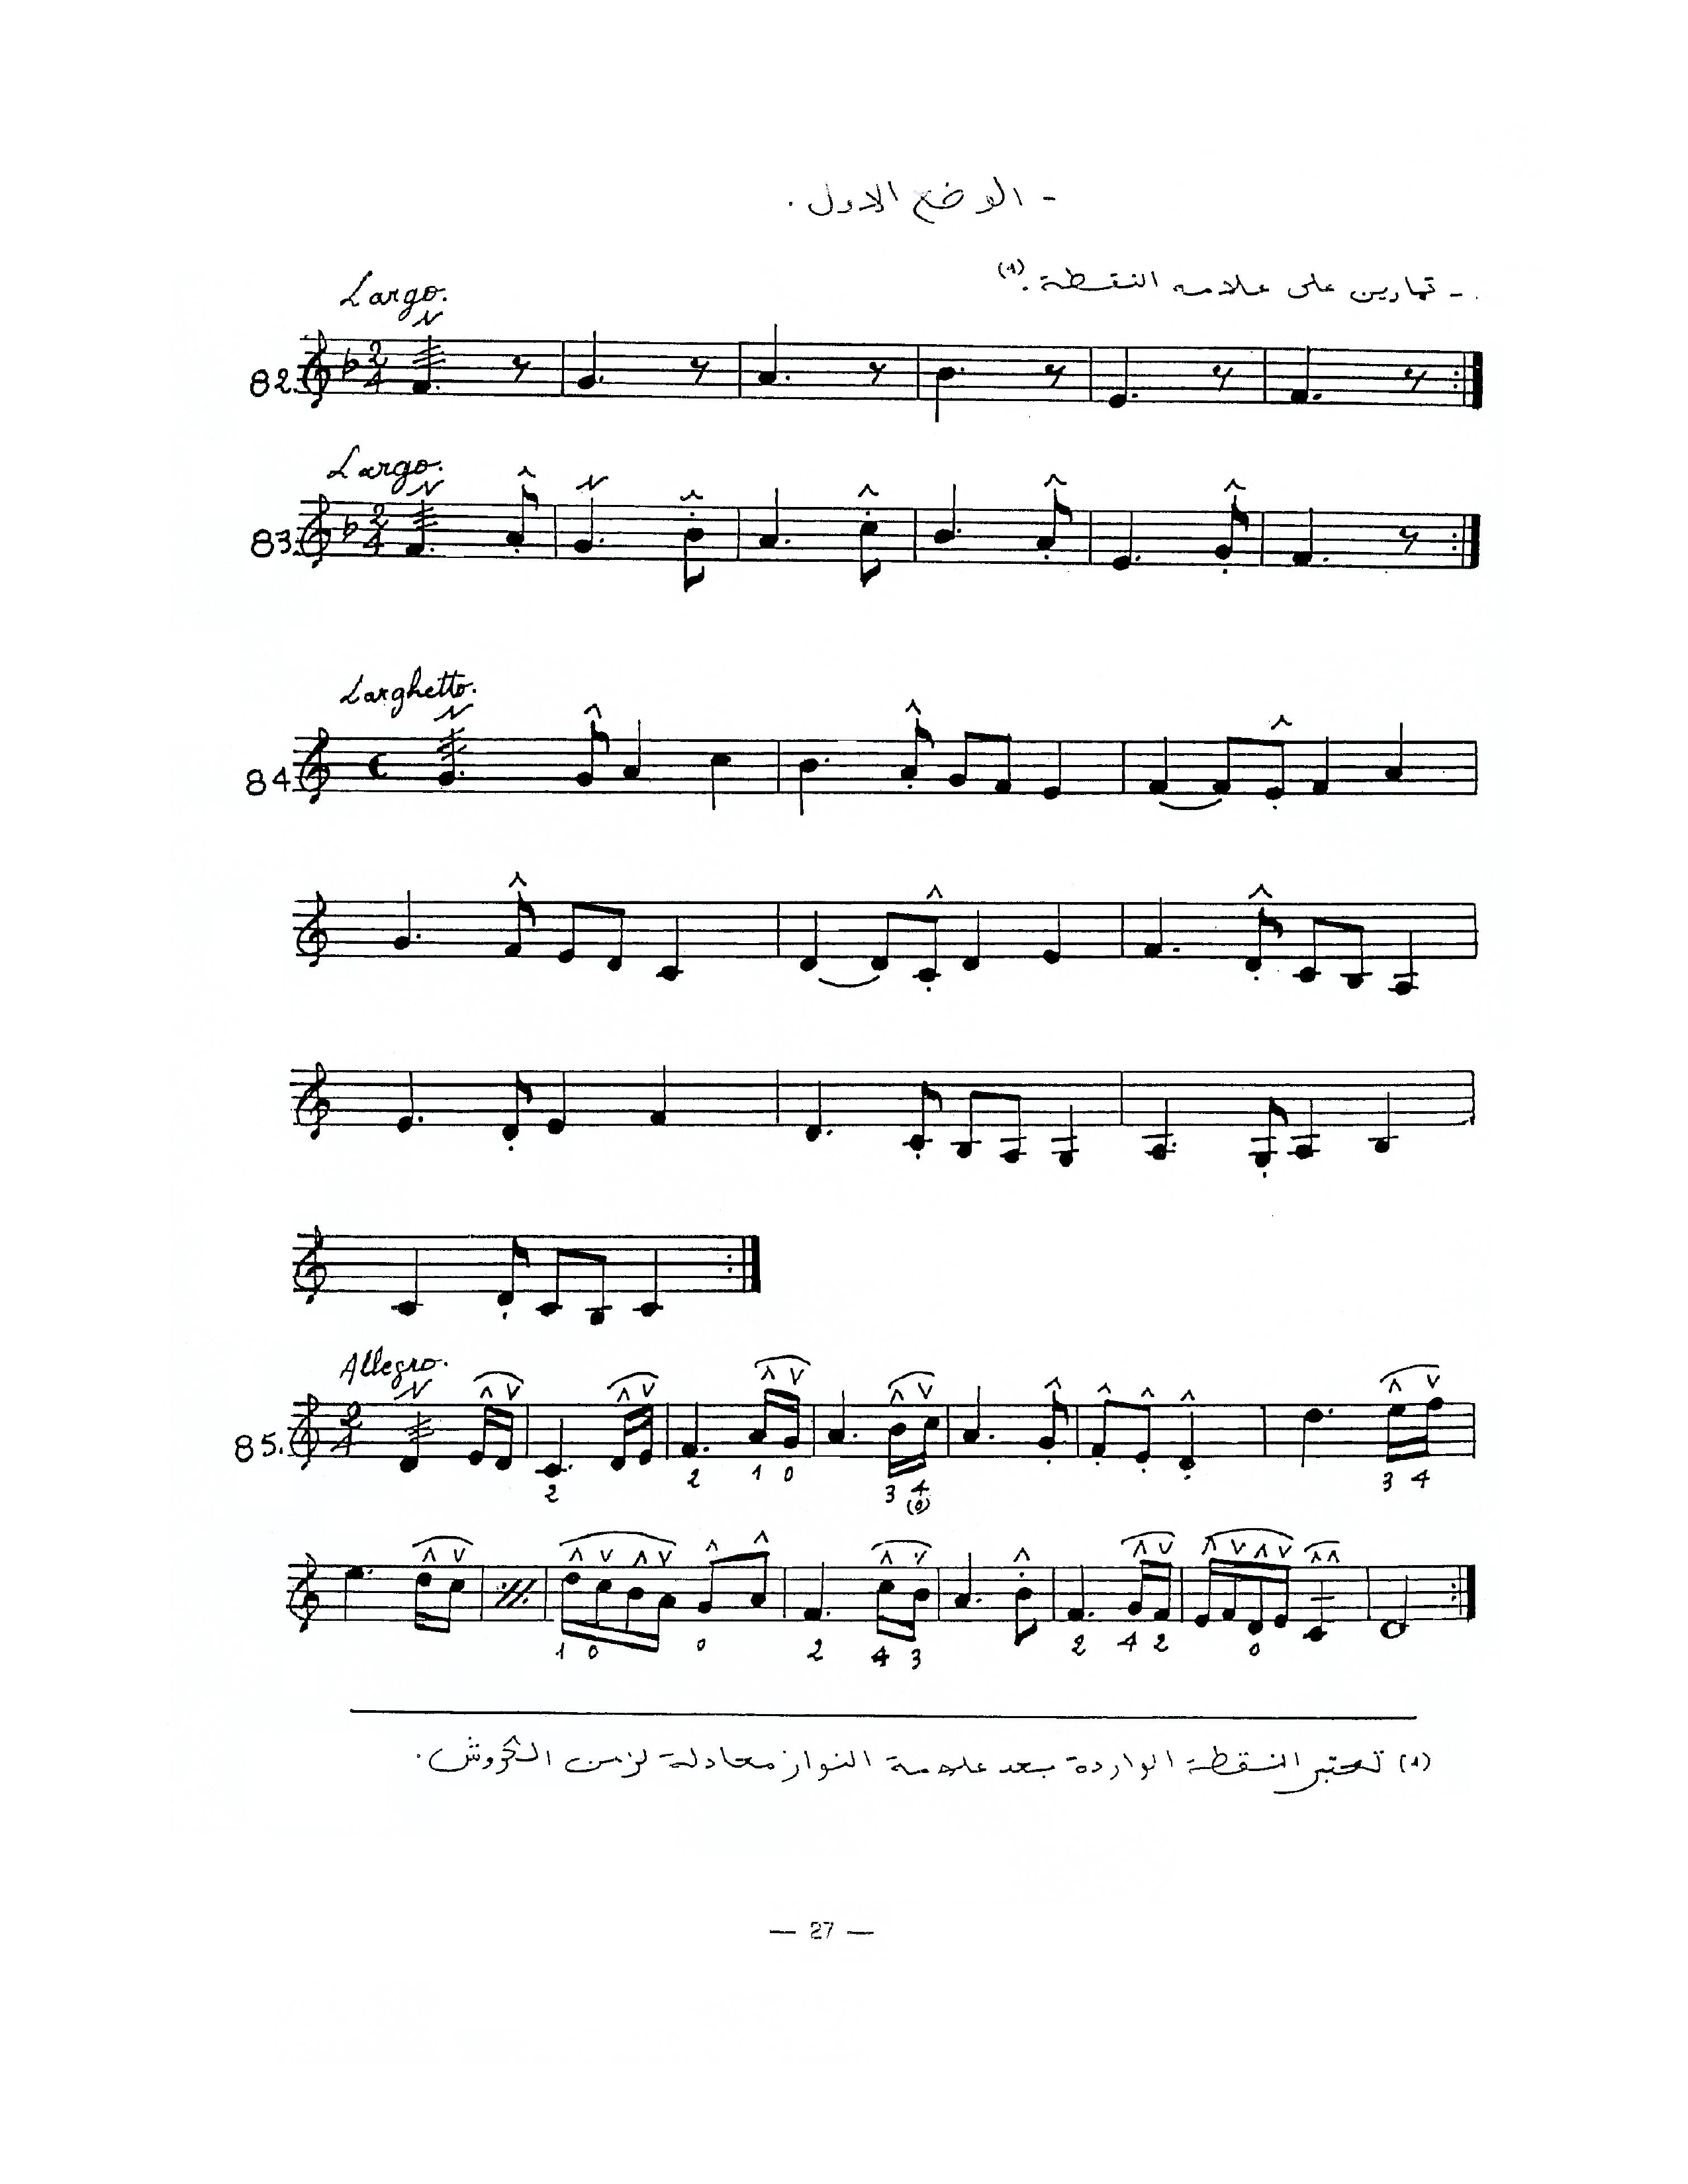 - الوضع الاول .
- تمارين على علامه النقطة . (١)
Largo.
82.
2 4
Largo.
83.
2 4
Larghetto.
84
Allegro.
85.
2 4
2 2 1 0 3 4 (0) 3 4
1 0 0 2 4 3 2 4 2 0
(١) تعتبر النقطة الواردة بعد علامة النوار معادلة لزمن الكروش .
— 27 —